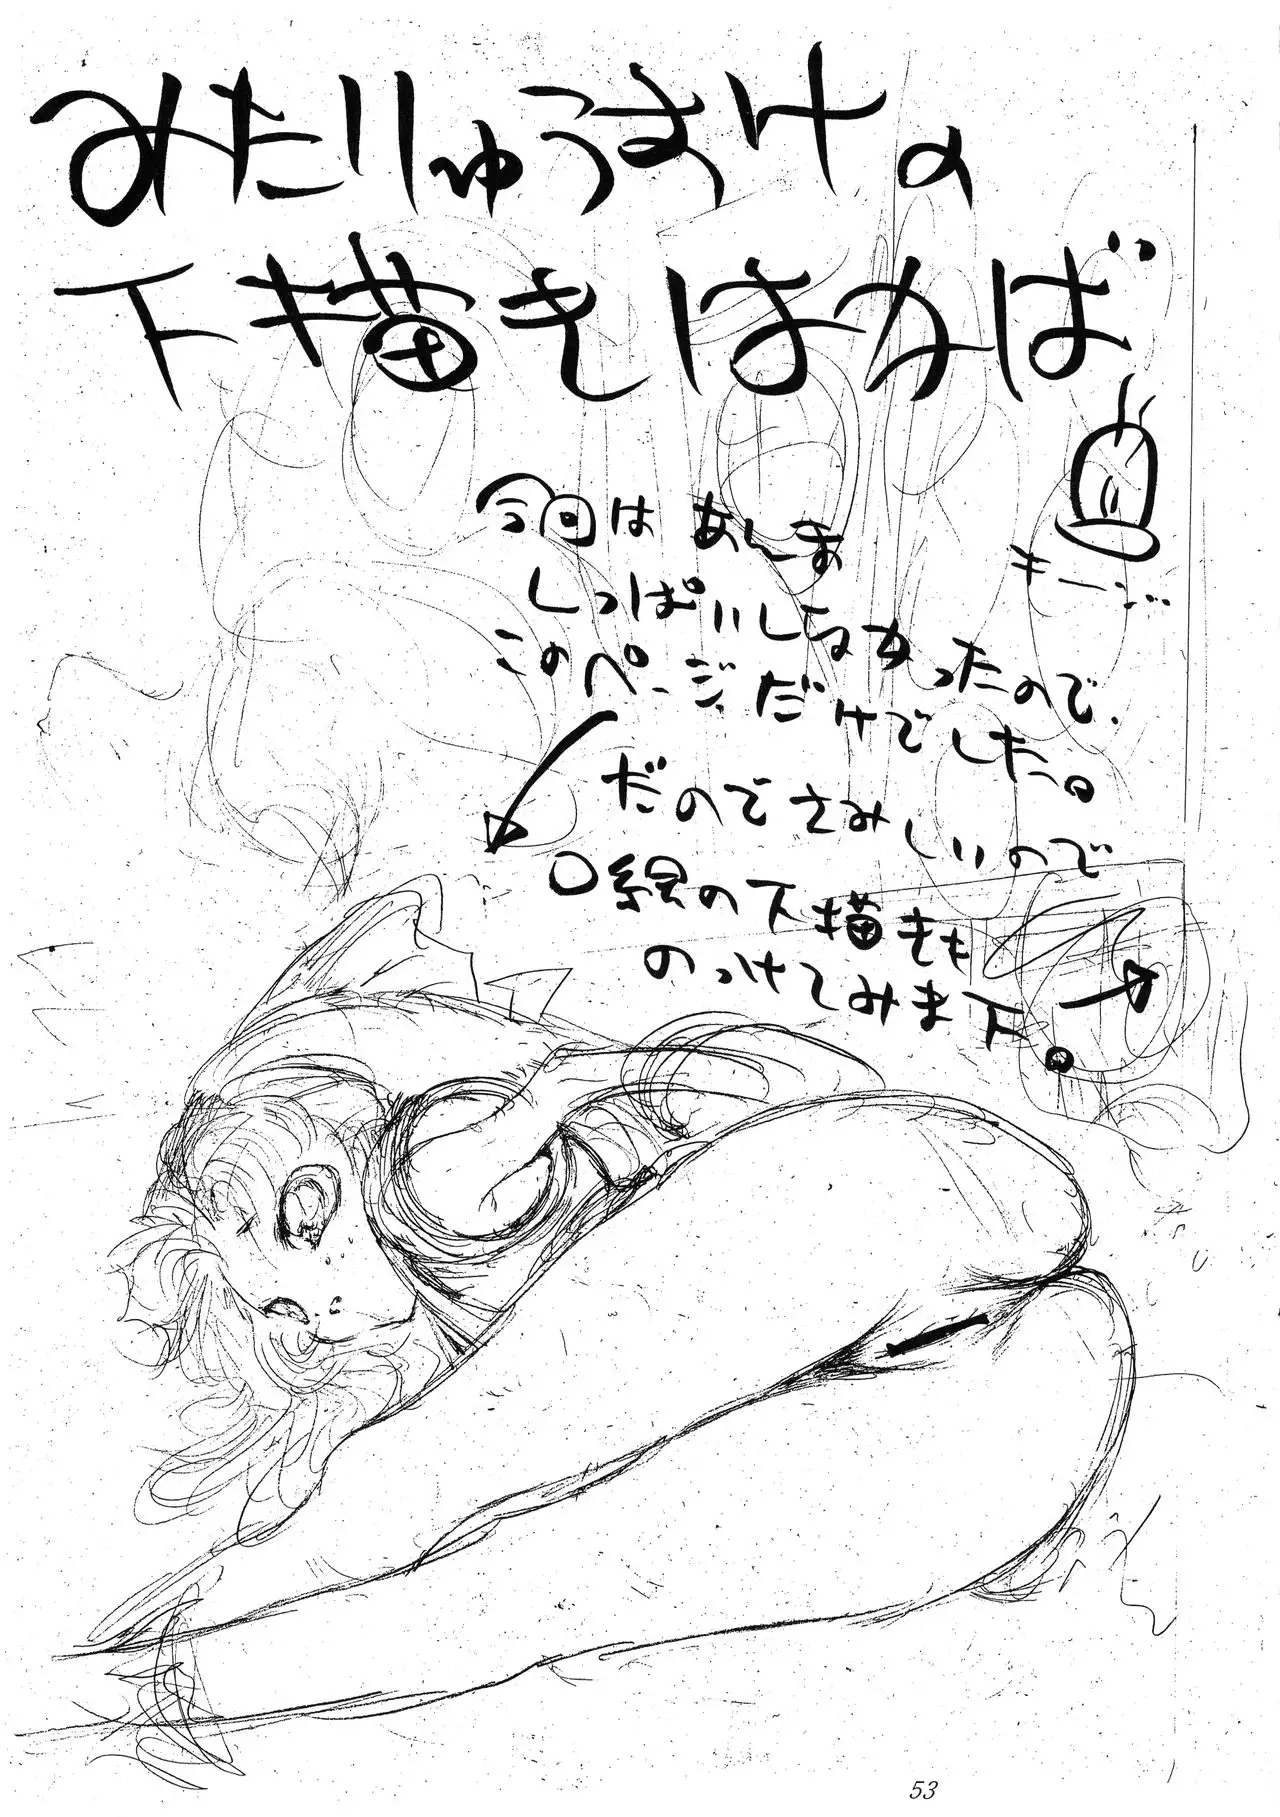 みたりゅうすけの
下描きはかば
キーン・・
今回はあんま
しっぱいしなかったので、
このページだけでした。
だのでさみしいので
口絵の下描きも
のっけてみま下。
53